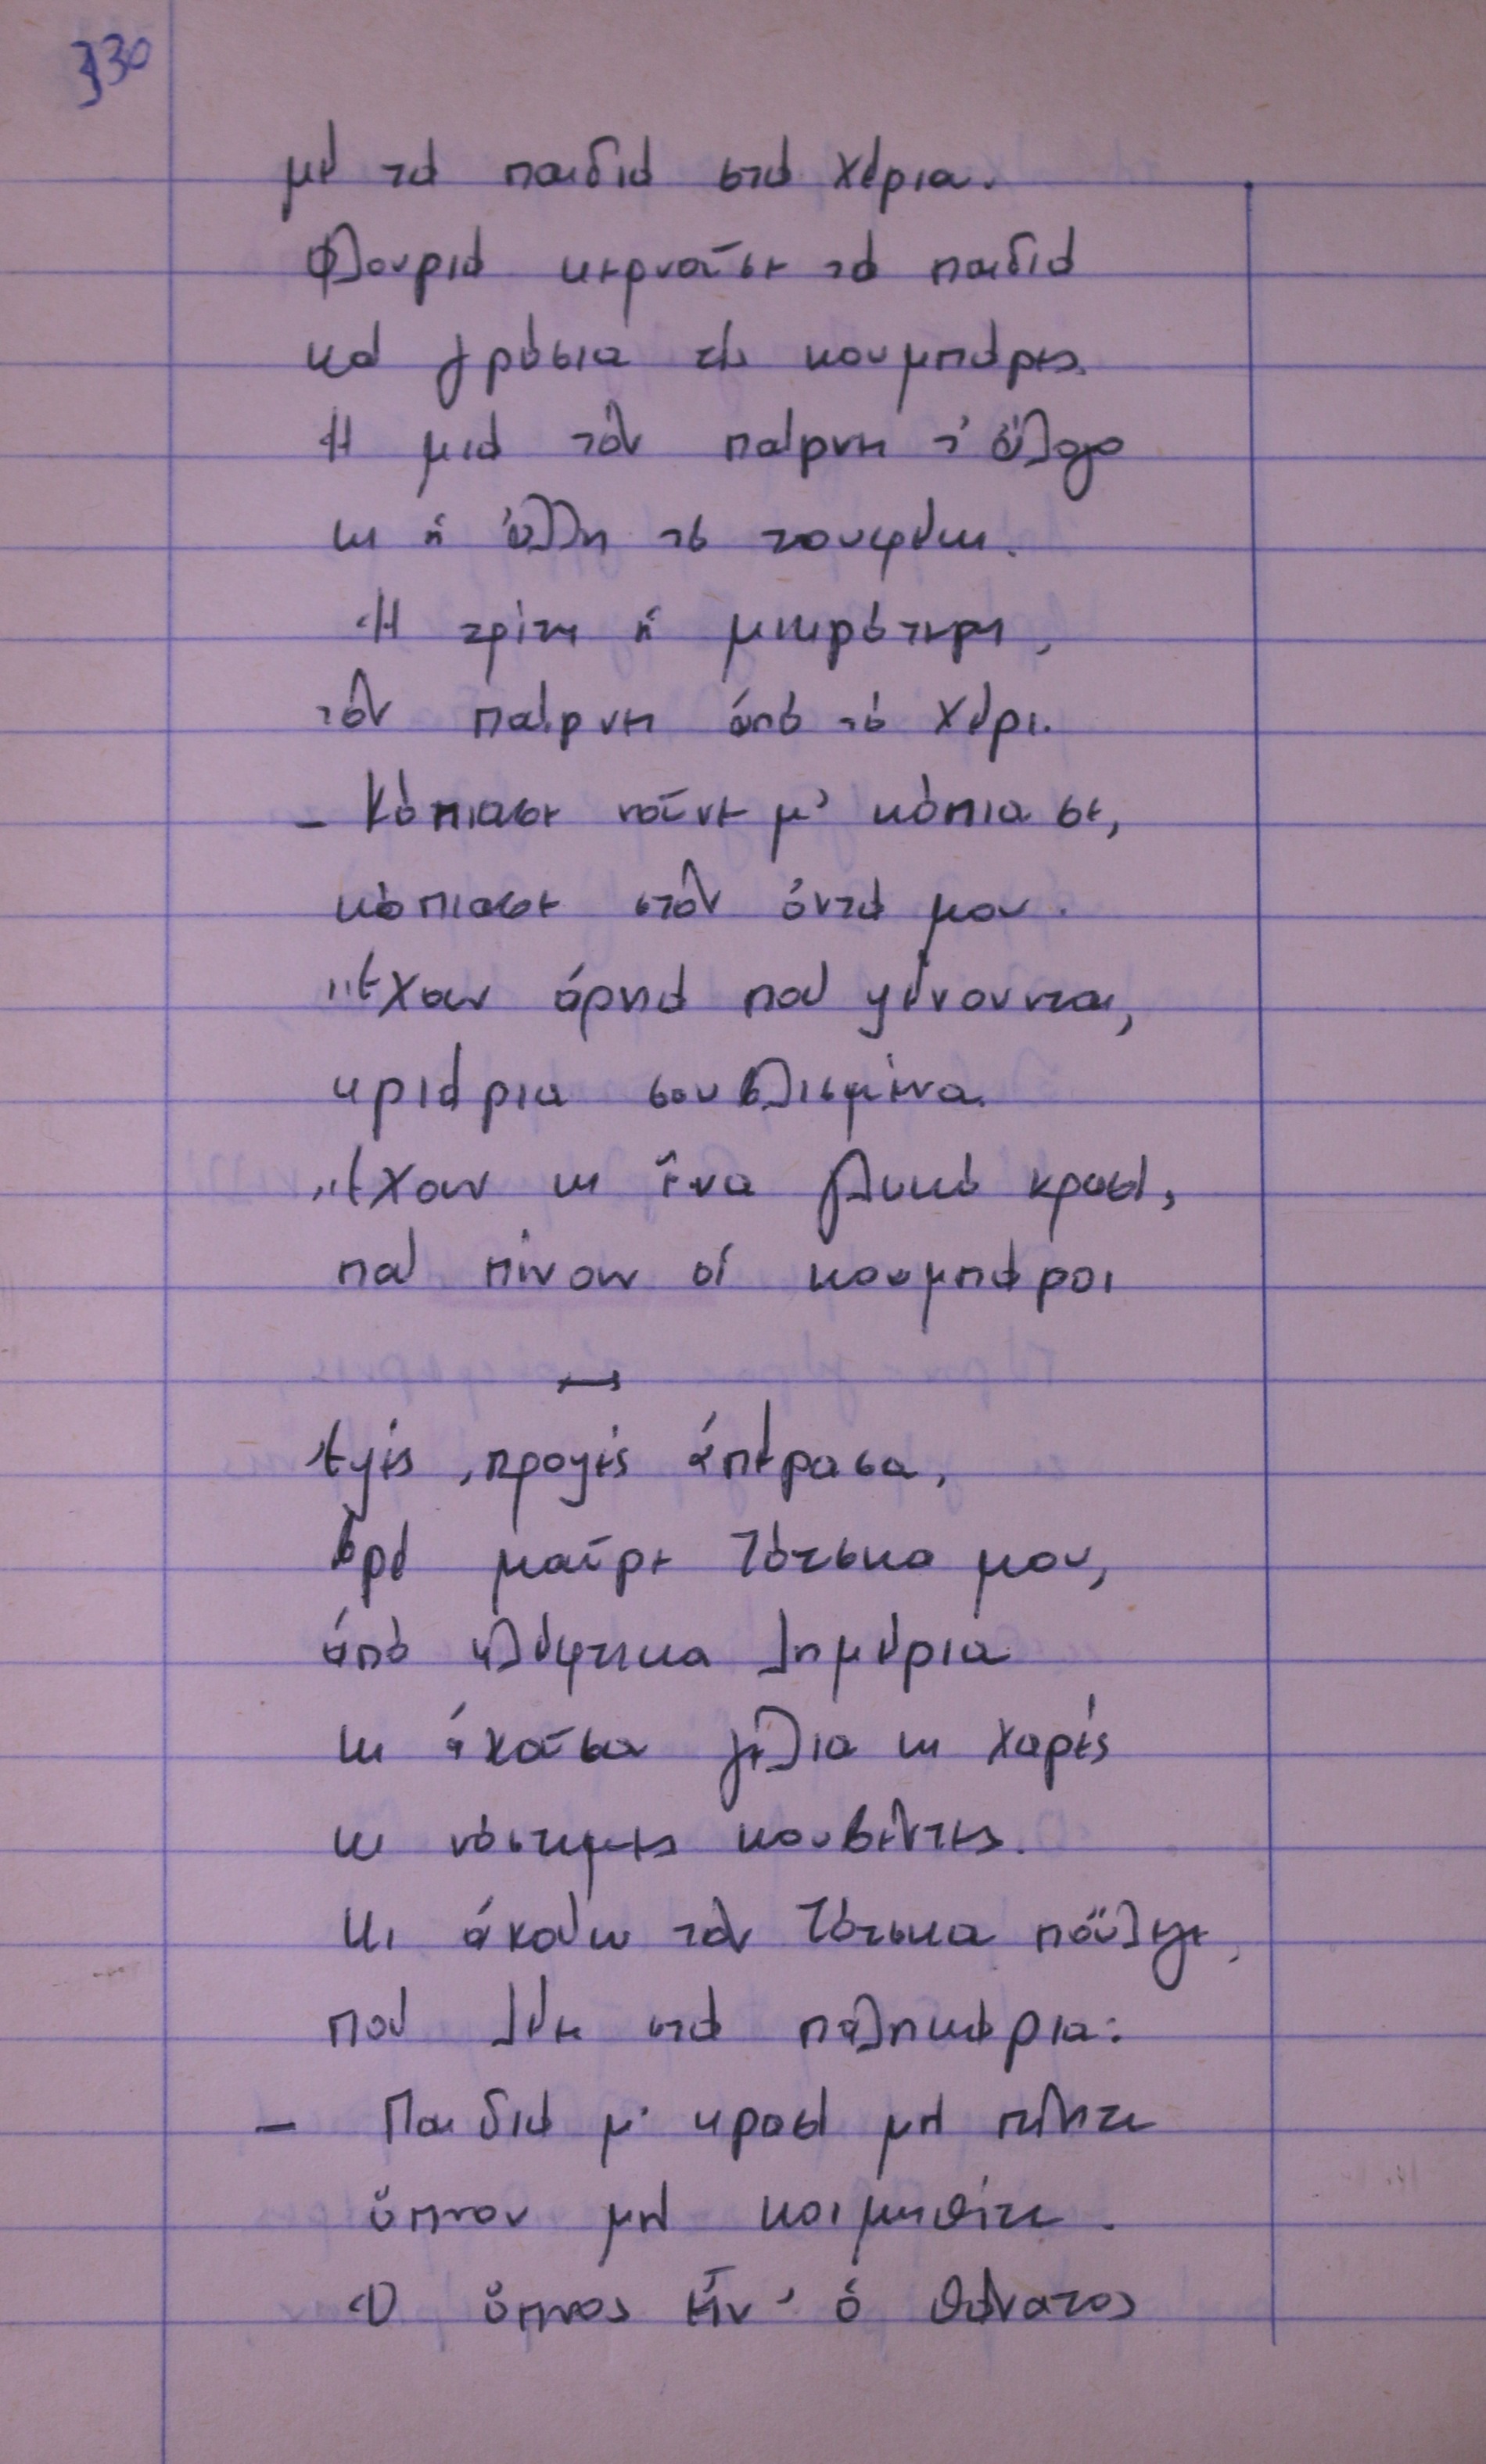 330
μὲ τὰ παιδιὰ στὰ χέρια.
Φλουριὰ κερνοῦσε τὰ παιδιὰ
καὶ γρόσια τὶς κουμπάρες.
Ἡ μιὰ τὸν παίρνει τ' ἄλογο
κι ἡ ἄλλη τὸ τουφέκι.
Ἡ τρίτη ἡ μικρότερη,
τὸν παίρνει ἀπὸ τὸ χέρι.
- Κόπιασε νοῦνε μ' κόπιασε,
κόπιασε στὸν ὀντά μου.
Ἔχουν ἀρνιὰ ποὺ ψένουνται,
κριάρια σουβλισμένα.
Ἔχουν κι ἕνα γλυκὸ κρασί,
ποὺ πίνουν οἱ κουμπάροι
Ἐψὲς, προψὲς ἀπέρασα,
βρὲ μαῦρε Τότσκα μου,
ἀπὸ κλέφτικα λημέρια
κι ἀκοῦσα γέλια κι χαρὲς
κι νόστιμες κουβέντες.
Κι ἀκούω τὸν Τότσκα πὄλεγε,
ποὺ λέει στὰ παληκάρια:
- Παιδιά μ' κρασὶ μὴ πιῆτε
ὕπνον μὴ κοιμηθῆτε.
Ὁ ὕπνος εἶν' ὁ θάνατος